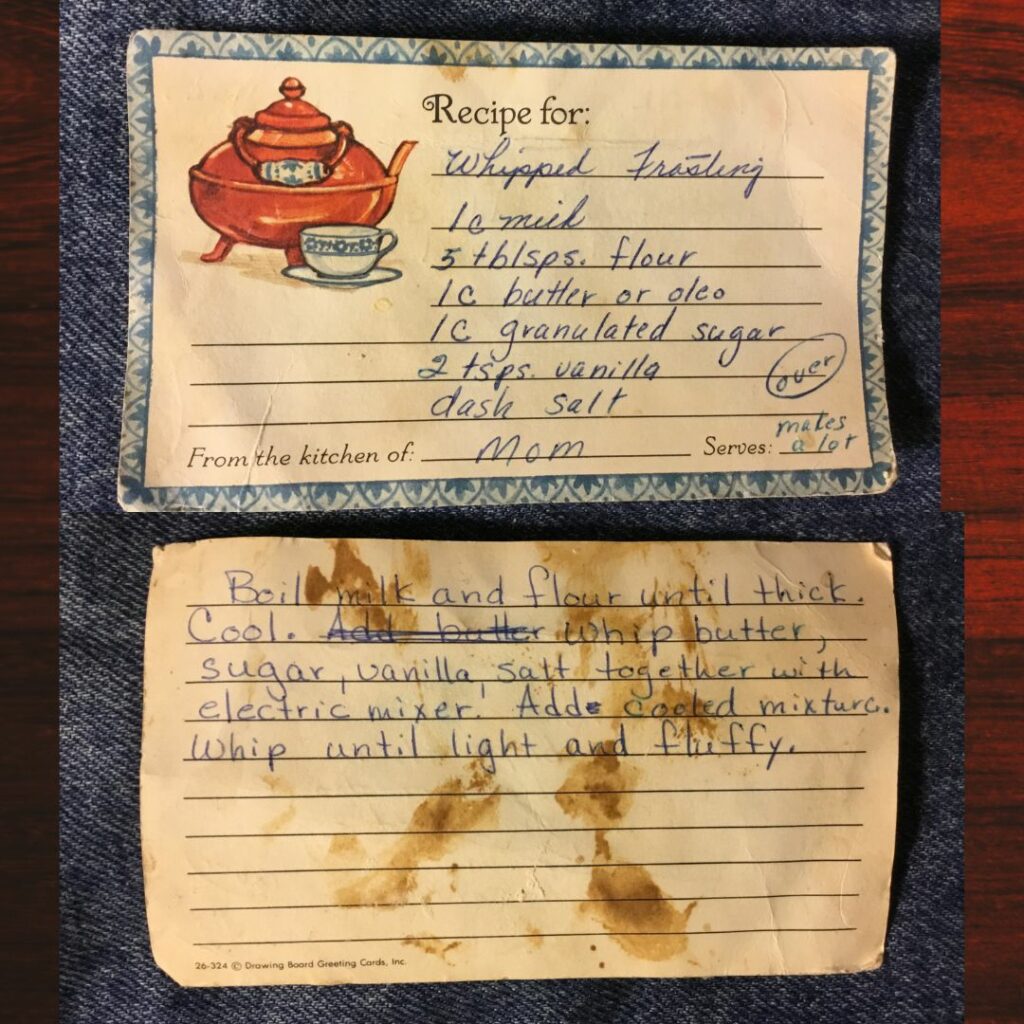 Recipe for:
Whipped Frosting
1c milk
5 tblsps. flour
1c butter or oleo
1c granulated sugar
2 tsps. vanilla
over
dash salt
From the kitchen of: Mom Serves: makes
a lot
Boil milk and flour until thick.
Cool. Add butter Whip butter,
sugar, vanilla, salt together with
electric mixer. Add cooled mixture.
Whip until light and fluffy.
26-324 © Drawing Board Greeting Cards, Inc.